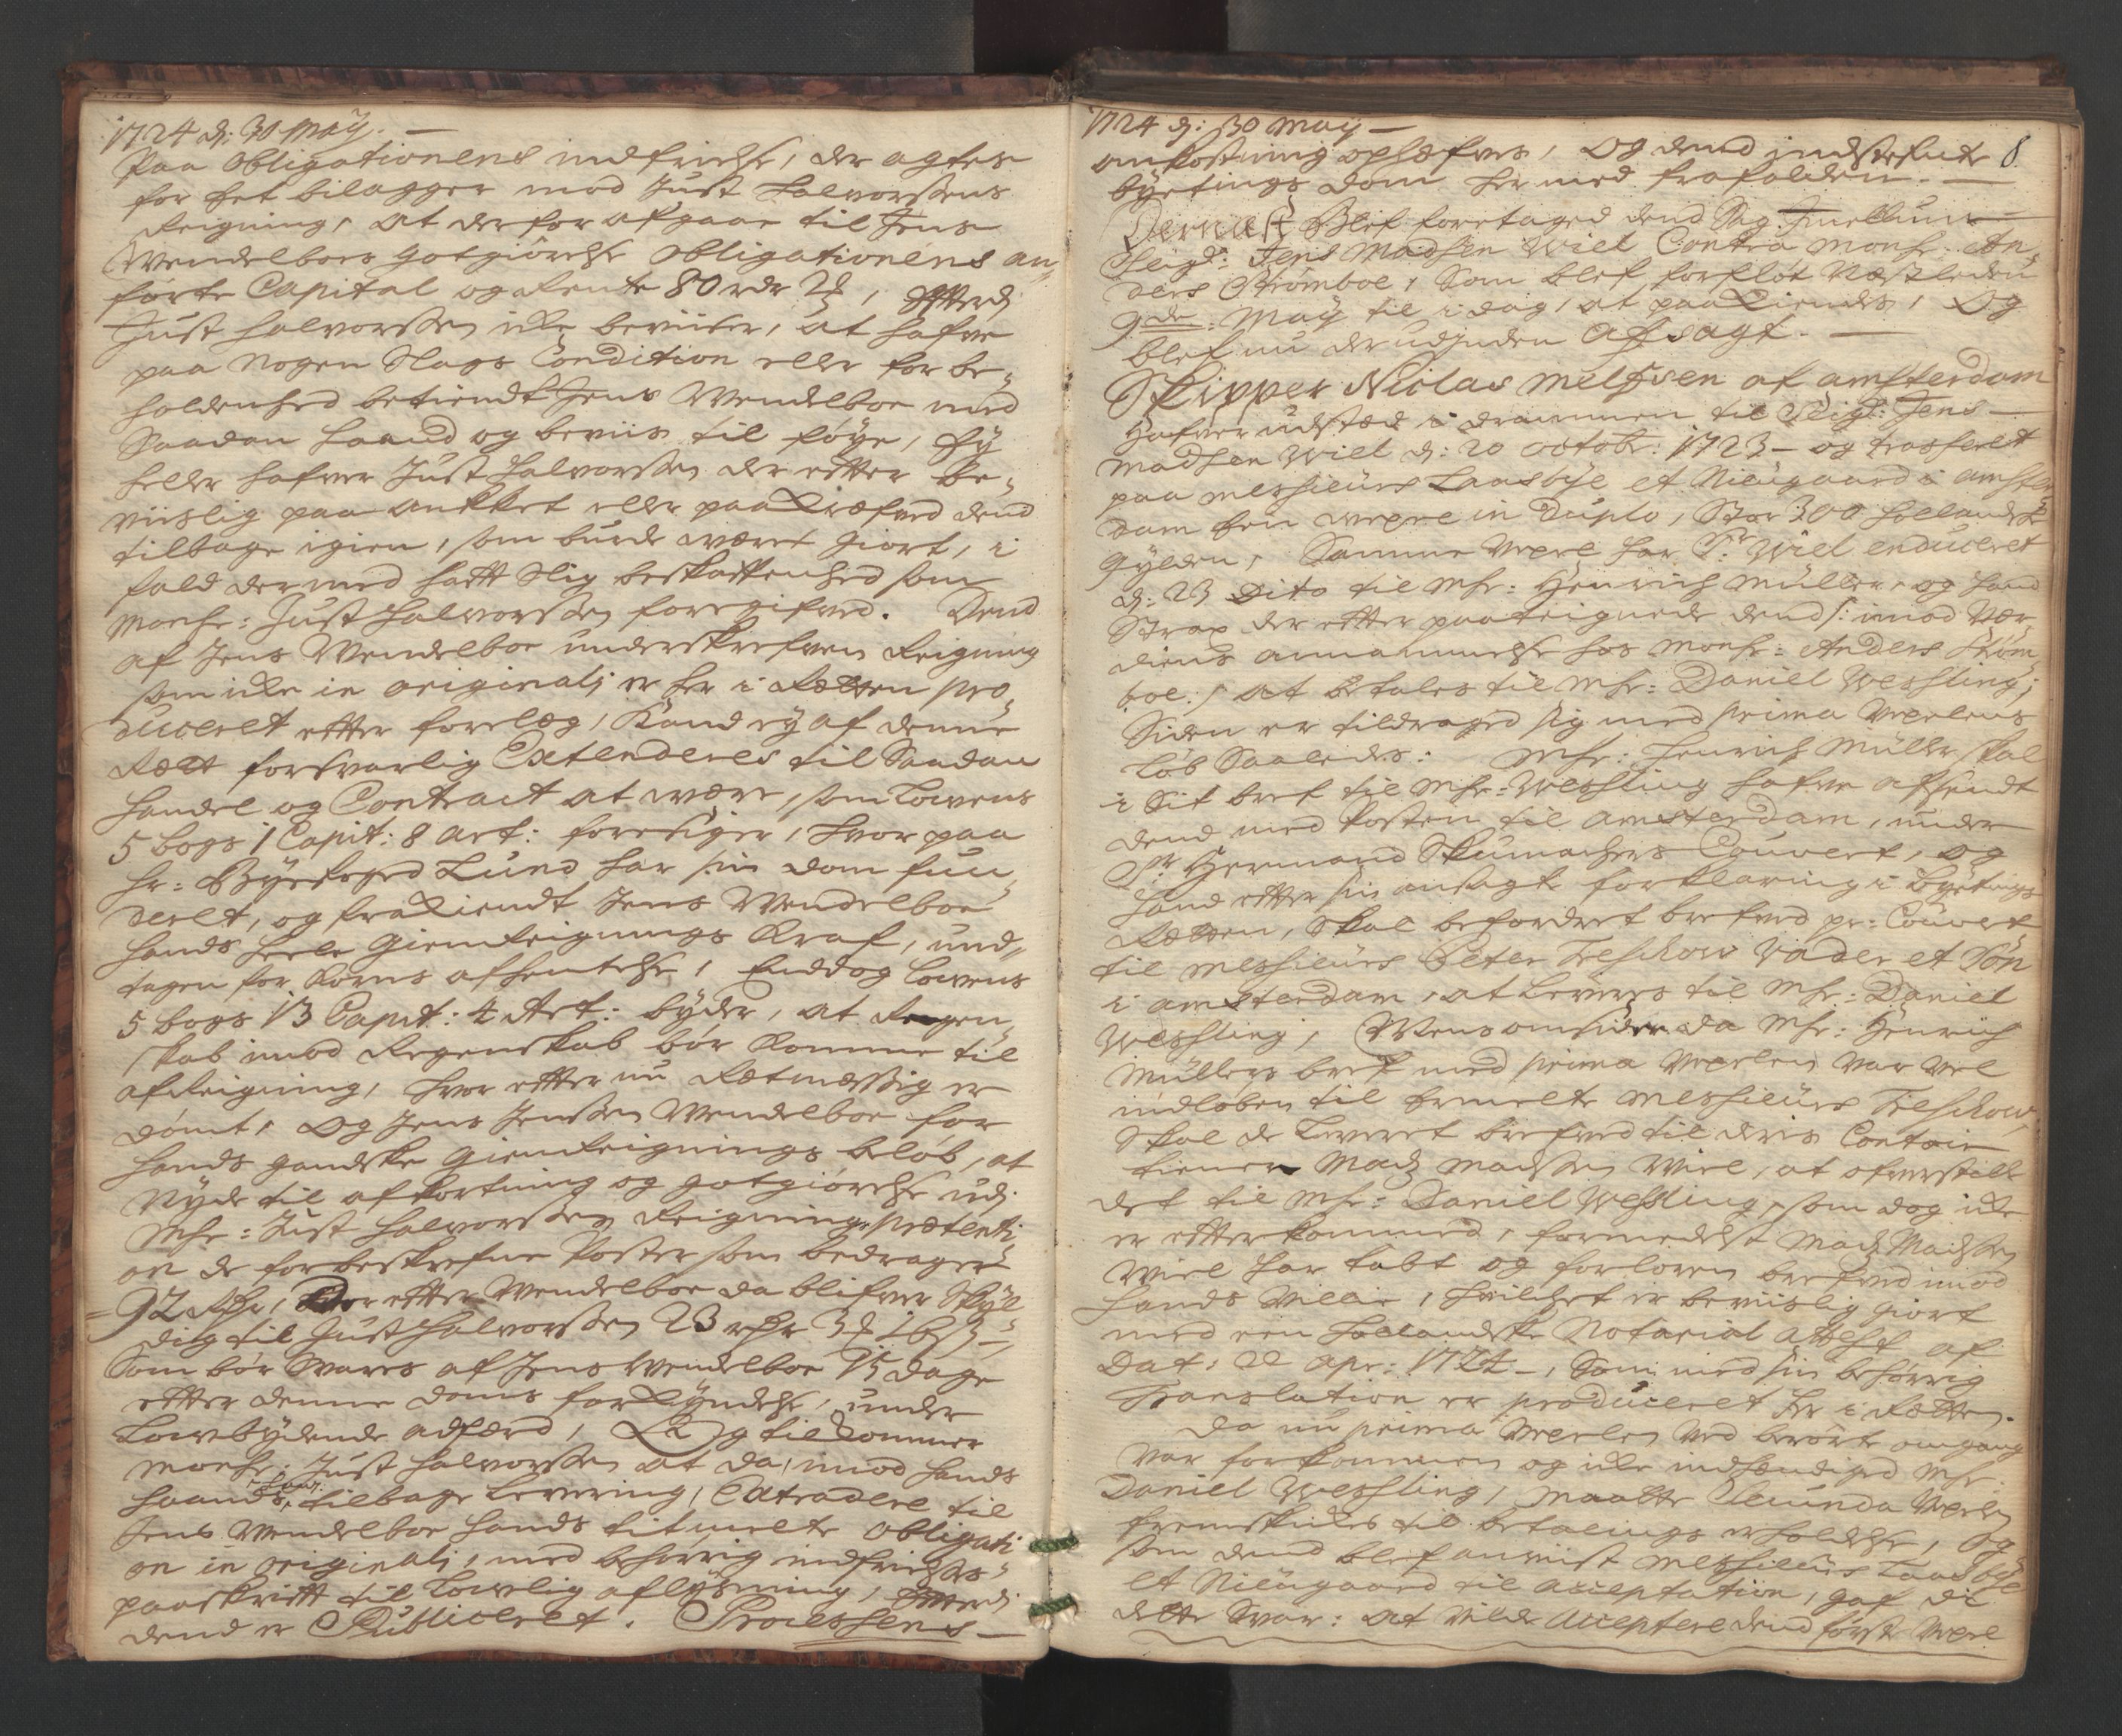 1724 d: 30 May. —
Paa Obligationens indfrielse, der agtes
for het bilagger mod Just Halvorssens
Reigning, at derfor afgaar til Jens
Wendelboes Gotgiörelse Obligationens an„
förte Capital og Rente 80 rdr 2
Just Halvorssen icke beviiser, at hafve
paa nogen Slags Condition eller forbe„
holdenhed betiendt Jens Wendelboe med
Saadan haand og beviis til föye, Ey
heller hafver Just Halvorssen der effter be„
viislig paa ancket eller paaKræfved dend
tilbage igien, som burde været giort, i
fald dermed hafft Slig beskaffenhed som
Monsr: Just Halvorssen foregifved. Dend
af Jens Wendelboe underskrefven Reigning
som icke in originali er her i Rætten pro„
duceret effter forelæg, Kand ey af denne
Rætt forsvarlig Extenderes til Saadan
Handel og Contract at være, som Lovens
5 bogs 1 Capit: 8 art: foresiger, hvorpaa
hr: Byefoged Lund har sin dom fun„
deret, og fraKiendt Jens Wendelboe
hands heele GienReignings Kraf, und„
tagen for Korns afhentelse, Enddog Lovens
5 bogs 13 Capit: 4 Art: byder, at Regen„
skab imod Regenskab bör Komme til
afReigning, hvor effter nu Rætmæssig er
dömt, Og Jens Jenssen Wendelboe for
hands gandske GienReignings belöb, at
Nyde til afkortning og gotgiörelse udj
Mhr: Just Halvorssens Reignings prætenti„
on de forbeskrefne Poster som bedrager
92 Rdr, Hvor effter Wendelboe da blifver Skyl„
dig til Just Halvorssen 23 rdr 3
Som bör Svares af Jens Wendelboe 15 dage
effter denne doms forKyndelse, under
Lowbydende adfærd, Og tilkommer
Monsr: Just Halvorssen at da, imod hands
haands tilbage Levering, Extradere til
Jens Wendelboe hands titmelte Obligati„
on in originali, med behörrig indfrielses„
paaskrifft til Lowlig aflysning,
dend er Publiceret. Processens —
1724 d: 30 May —
8
ankostning ophæfves, Og dend indstefnte
byetings dom hermed frafalden. —
Dernæst Blef foretaged dend Sag Imellum
Seigr: Jens Madsen Wiel Contra Monsr: An„
ders Strömboe, Som blef forflöt Næstleden
9de: May til i dag, at paaKiendes, Og
blef nu derudjnden Afsagt. —
Skipper Niclas Melssen af Amsterdam
Hafver udstæd i drammen til Seigr: Jens
Madsen Wiel d: 20 octobr: 1723 — og trasseret
paa Messieurs Laasbye et Nieugaard i Amster
dam een vexel in Duplo, Stor 300 hollandske
gylden, Samme vexel har Sr: Wiel enduceret
d: 23 Dito til Mhr: Henrich Müller, og hand
Strax der effter paateignede dend /: imod Vær„
diens annammelse hos Monsr: Anders Ström„
boe :/ at betales til Mhr: Daniel Wessling;
Siden er tildraged sig med prima Vexelens
Löb Saaledes: Mhr: Henrich Müller skal
i Sit bref til Mhr: Wessling hafve afsendt
dend med Posten til Amsterdam, under
Sr Hermand Skumachers Couvert, og
hand effter sin ansagte forklaring i byetings
Rætten, Skal befordret brefved pr: Couvert
til Messieurs Peter Treschow Vader et Sön
i Amsterdam, at Levere til Mhr: Daniel
Wessling, Mens omsider da Mhr: Henrich
Müllers bref med prima Vexelen var vel
indlöben til bemelte Messieurs Treschow,
Skal de Leveret brefved til deris Contoir
tiener Mads Madsen Wiel, at ofverstille
det til Mhr: Daniel Wessling, som dog icke
er effterkommed, formedelst Mads Madsen
Wiel har tabt og forloren brefved imod
hands Villie, hvilchet er beviislig giort
med een hollandske Notarial Attest af
Dat: 22 Apr: 1724 —, Som med sin behörrig
Translation er produceret her i Rætten.
Da nu prima Vexelen ved berörte omgang
var forkommen og icke indhændiged Mhr
Daniel Wessling, maatte Secunda Vexelen
fremskickes til betalings erholdelse, Og
som dend blef anviist Messieurs Laasbye
et Nieugaard til Acceptation, gaf de
dette Svar: at vilde Acceptere dend förste Vexel